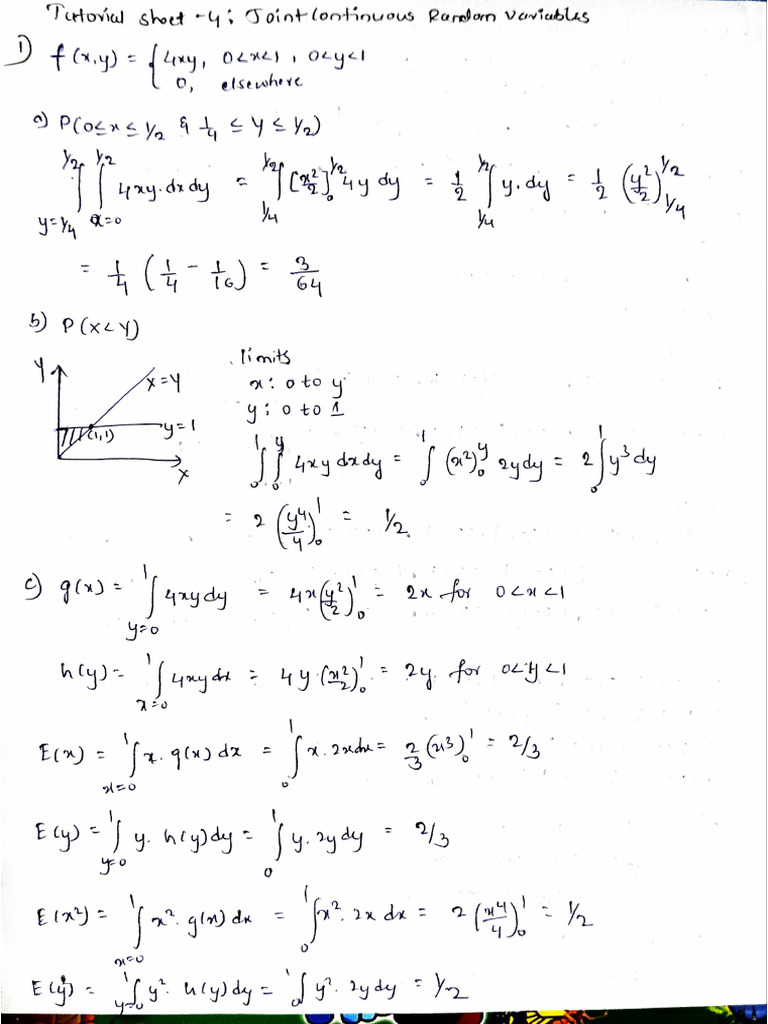 Tutorial sheet -4: Joint Continuous Random Variables
1) f(x,y) = { 4xy, 0<x<1, 0<y<1
0, elsewhere
a) P(0≤x≤1/2 & 1/4 ≤ Y ≤ 1/2)
∫_{y=1/4}^{1/2} ∫_{x=0}^{1/2} 4xy.dx dy = ∫_{1/4}^{1/2} [x²/2]_0^{1/2} 4y dy = 1/2 ∫_{1/4}^{1/2} y.dy = 1/2 (y²/2)_{1/4}^{1/2}
= 1/4 (1/4 - 1/16) = 3/64
b) P(X<Y)
Y
X=Y
y=1
(1,1)
X
limits
x: 0 to y
y: 0 to 1
∫_0^1 ∫_0^y 4xy dx dy = ∫_0^1 (x²)_0^y 2y dy = 2 ∫_0^1 y³ dy
= 2 (y⁴/4)_0^1 = 1/2.
c) g(x) = ∫_{y=0}^1 4xy dy = 4x(y²/2)_0^1 = 2x for 0<x<1
h(y) = ∫_{x=0}^1 4xy dx = 4y.(x²/2)_0^1 = 2y. for 0<y<1
E(x) = ∫_{x=0}^1 x.g(x) dx = ∫_0^1 x.2x dx = 2/3 (x³)_0^1 = 2/3
E(y) = ∫_{y=0}^1 y.h(y) dy = ∫_0^1 y.2y dy = 2/3
E(x²) = ∫_{x=0}^1 x².g(x) dx = ∫_0^1 x².2x dx = 2 (x⁴/4)_0^1 = 1/2
E(y²) = ∫_{y=0}^1 y².h(y) dy = ∫_0^1 y².2y dy = 1/2